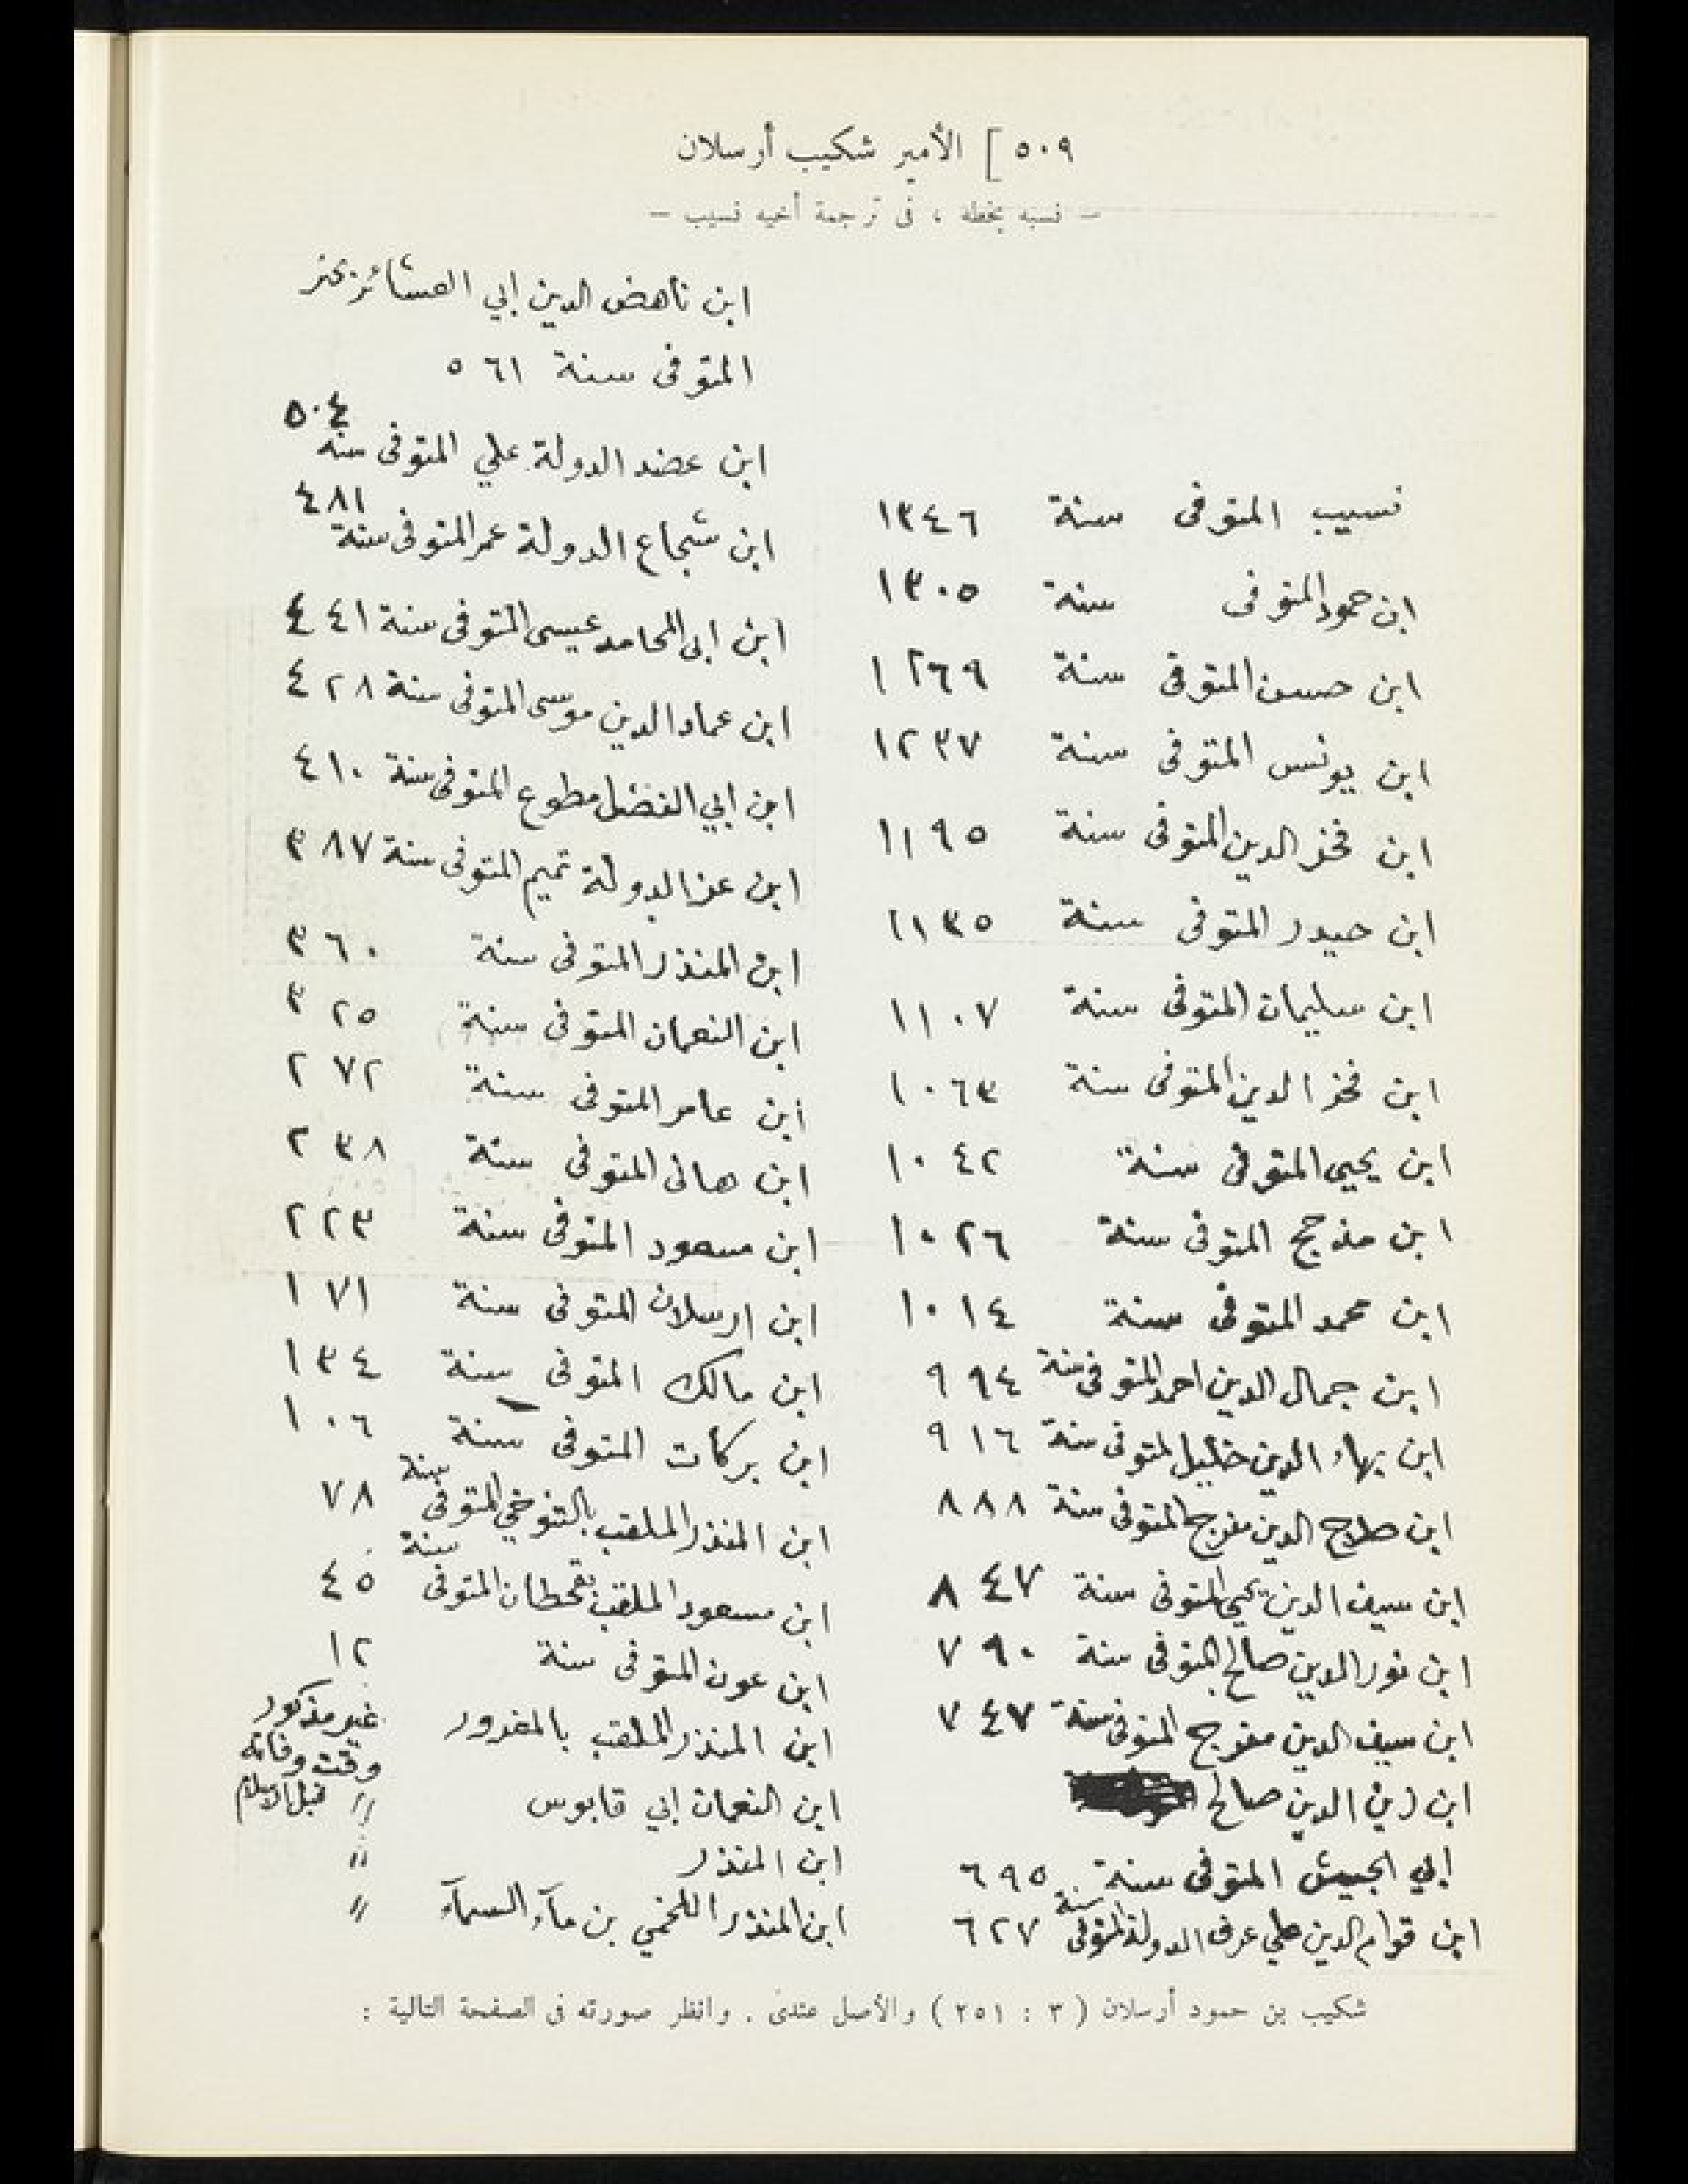 ٥٠٩ ] الأمير شكيب أرسلان
— نسبه بخطه ، في ترجمة أخيه نسيب —
نسيب المتوفى سنة ١٣٤٦
ابن حمود المتوفى سنة ١٣٠٥
ابن حسن المتوفى سنة ١٢٦٩
ابن يونس المتوفى سنة ١٢٣٧
ابن فخر الدين المتوفى سنة ١١٩٥
ابن حيدر المتوفى سنة ١١٣٥
ابن سليمان المتوفى سنة ١١٠٧
ابن فخر الدين المتوفى سنة ١٠٦٣
ابن يحيى المتوفى سنة ١٠٤٢
ابن مذحج المتوفى سنة ١٠٢٦
ابن محمد المتوفى سنة ١٠١٤
ابن جمال الدين احمد المتوفى سنة ٩٩٤
ابن بهاء الدين خليل المتوفى سنة ٩١٦
ابن صلاح الدين مفرج المتوفى سنة ٨٨٨
ابن سيف الدين يحيى المتوفى سنة ٨٤٧
ابن نور الدين صالح المتوفى سنة ٧٩٠
ابن سيف الدين مفرج المتوفى سنة ٧٤٧
ابن زين الدين صالح
ابي الجيش المتوفى سنة ٦٩٥
ابن قوام الدين علي عرف الدولة المتوفى سنة ٦٢٧
ابن ناهض الدين ابي العشائر بحتر
المتوفى سنة ٥٦١
ابن عضد الدولة علي المتوفى سنة ٥٠٤
ابن شجاع الدولة عمر المتوفى سنة ٤٨١
ابن ابي المحامد عيسى المتوفى سنة ٤٤١
ابن عماد الدين موسى المتوفى سنة ٤٢٨
ابن ابي الفضل مطوع المتوفى سنة ٤١٠
ابن عز الدولة تميم المتوفى سنة ٣٨٧
ابن المنذر المتوفى سنة ٣٦٠
ابن النعمان المتوفى سنة ٣٢٥
ابن عامر المتوفى سنة ٢٧٢
ابن هانى المتوفى سنة ٢٣٨
ابن مسعود المتوفى سنة ٢٢٣
ابن ارسلان المتوفى سنة ١٧١
ابن مالك المتوفى سنة ١٣٤
ابن بركات المتوفى سنة ١٠٦
ابن المنذر الملقب بالتنوخي المتوفى سنة ٧٨
ابن مسعود الملقب بقحطان المتوفى سنة ٤٥
ابن عون المتوفى سنة ١٢
ابن المنذر الملقب بالمغرور غير مذكور وقت وفاته
ابن النعمان ابي قابوس // قبل الاسلام
ابن المنذر //
ابن المنذر اللخمي بن مآء السمآء //
شكيب بن حمود أرسلان ( ٣ : ٢٥١ ) والأصل عندى . وانظر صورته في الصفحة التالية :